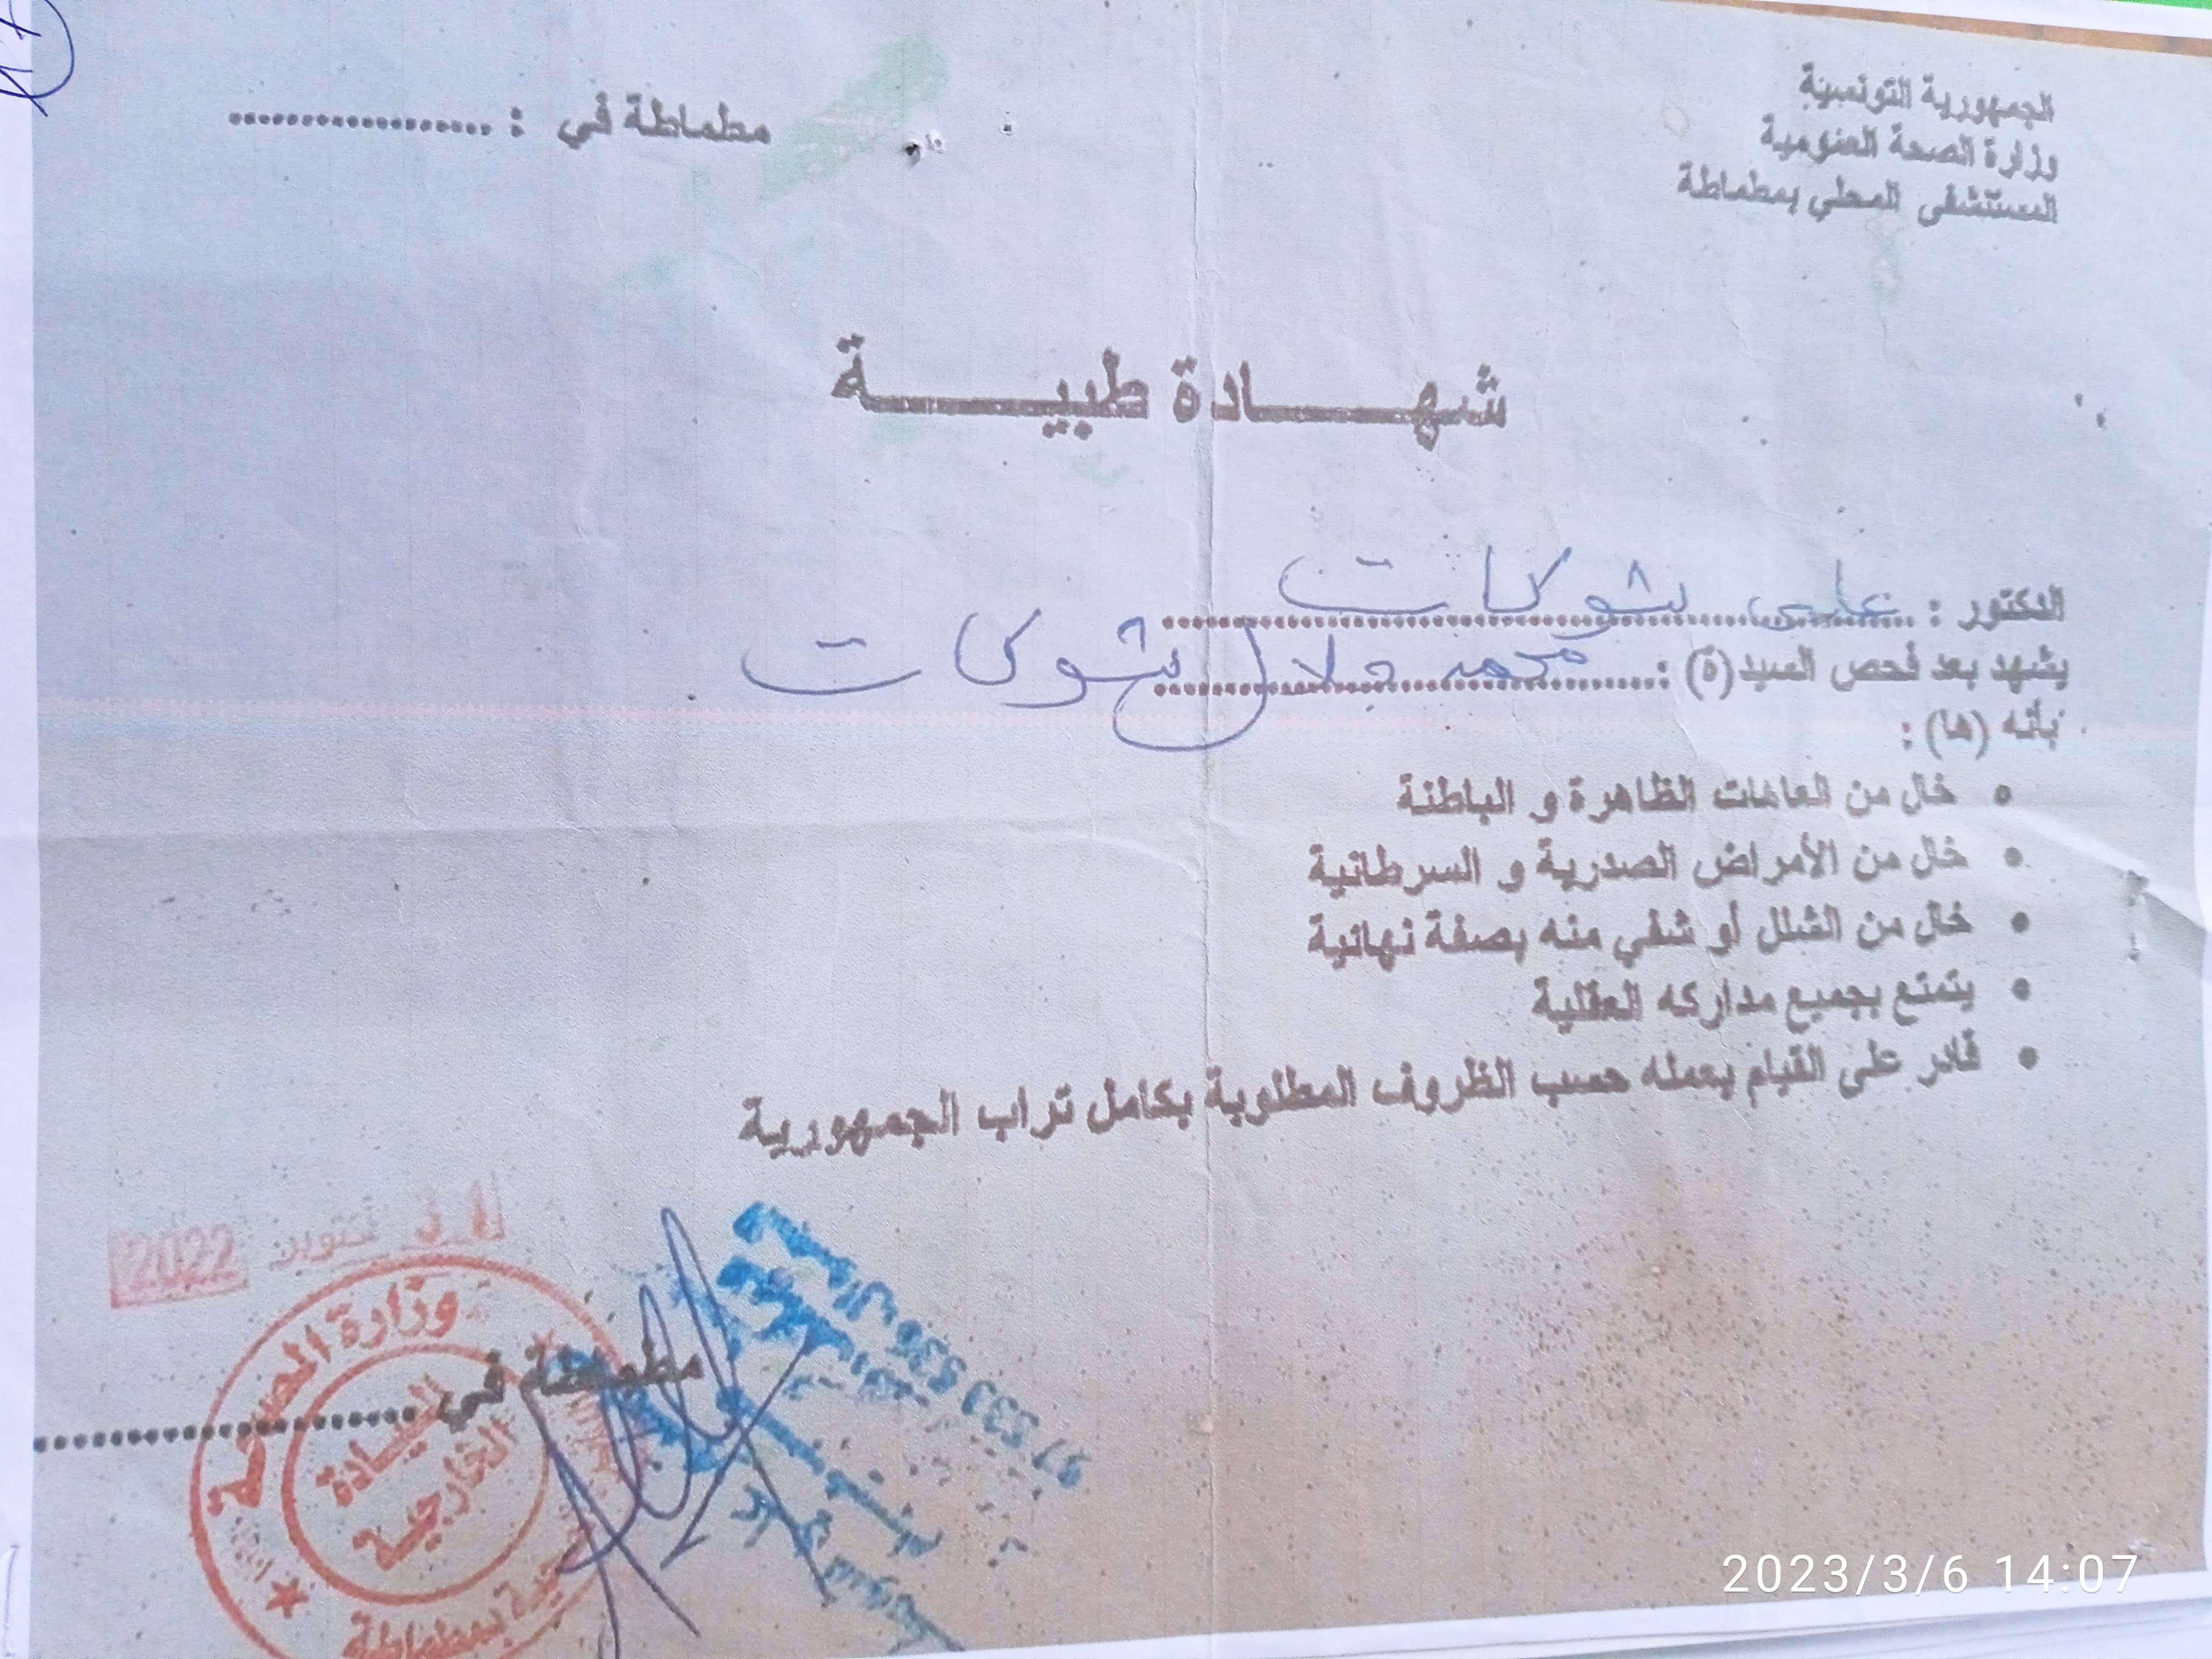 الجمهورية التونسية
وزارة الصحة العمومية
المستشفى المحلي بمطماطة
مطماطة في : ..................
شهـــــادة طبيـــــــة
الدكتور : علي شوكات
يشهد بعد فحص السيد(ة) : محمد جلال شوكات
بأنه (ها) :
• خال من العاهات الظاهرة و الباطنة
• خال من الأمراض الصدرية و السرطانية
• خال من الشلل أو شفي منه بصفة نهائية
• يتمتع بجميع مداركه العقلية
• قادر على القيام بعمله حسب الظروف المطلوبة بكامل تراب الجمهورية
أكتوبر 2022
مطماطة في ..................
وزارة الصحة
العيادة
الخارجية
بمطماطة
97 533 936
2023/3/6 14:07